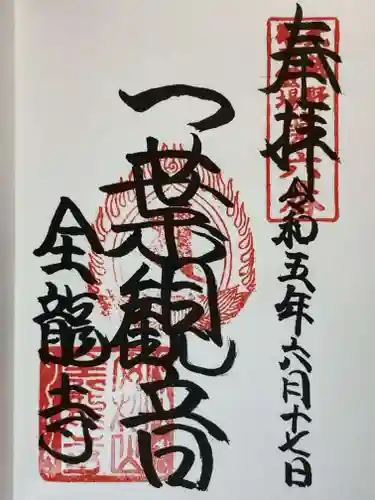 奉拝
令和五年六月十七日
一葉観音
金龍寺